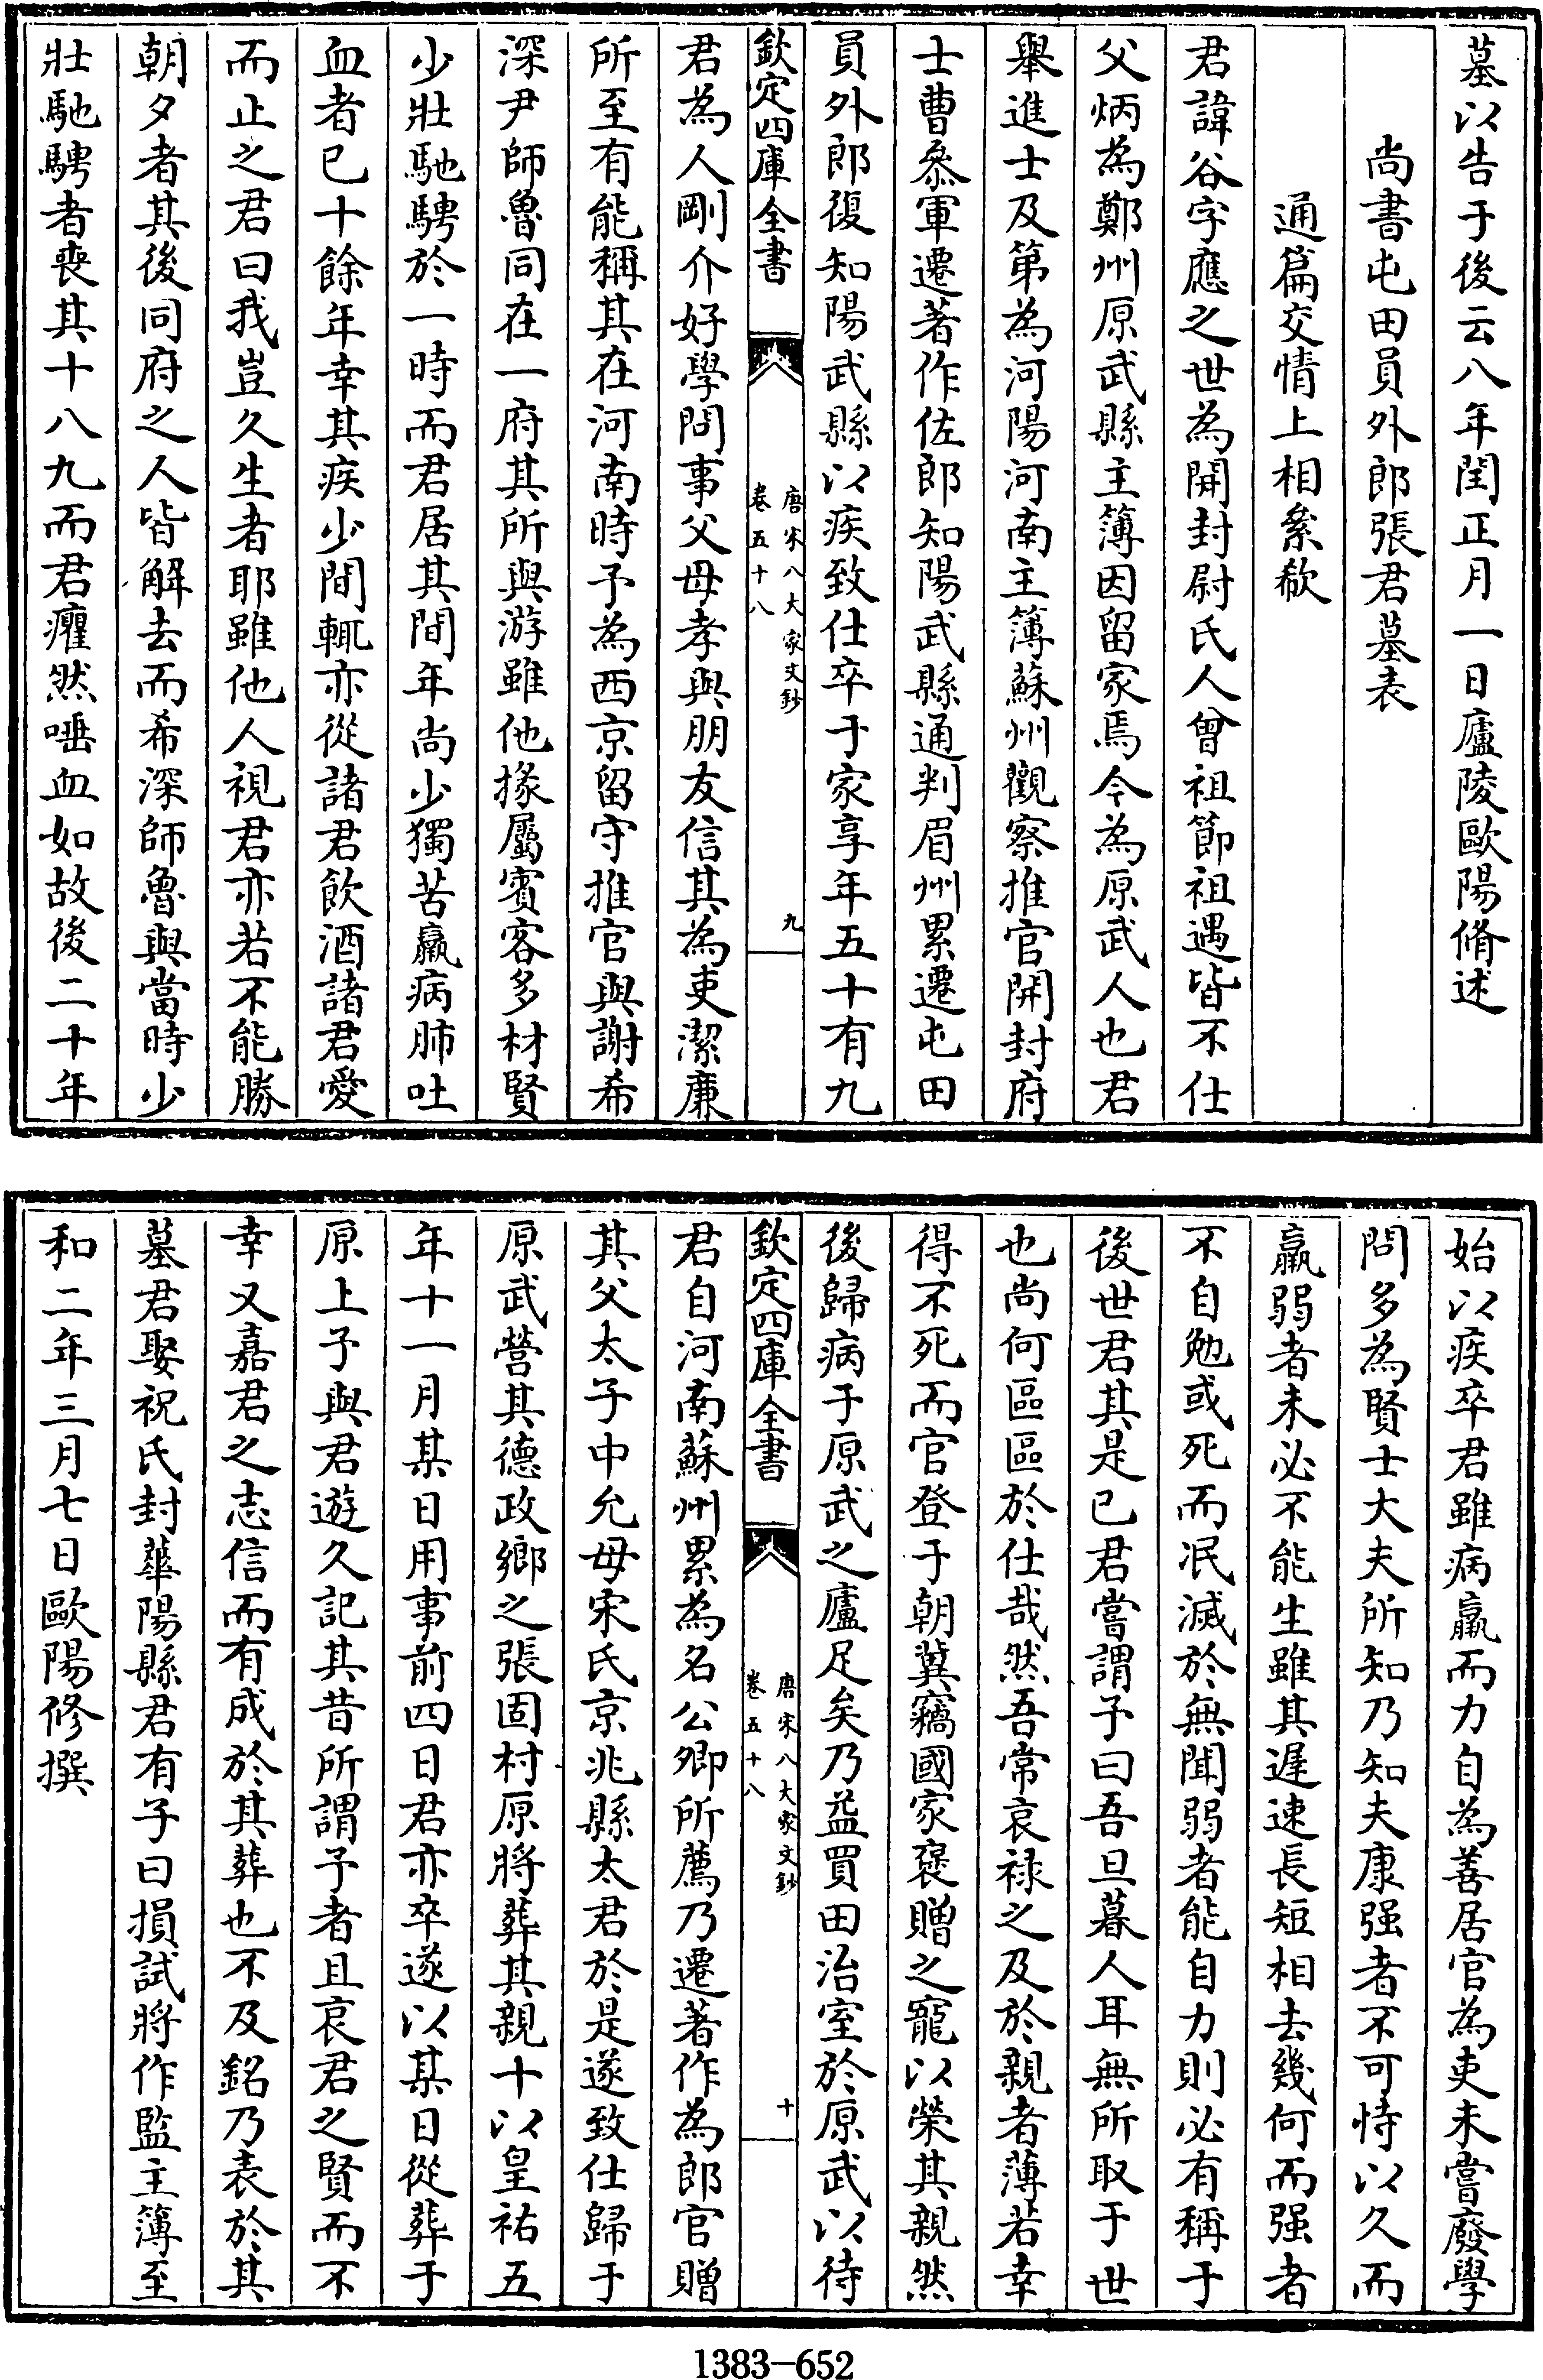 墓以告于後云八年閏正月一日廬陵歐陽脩述
尚書屯田員外郎張君墓表
通篇交情上相絫欷
君諱谷字應之世為開封尉氏人曾祖節祖遇皆不仕
父炳為鄭州原武縣主簿因留家焉今為原武人也君
舉進士及第為河陽河南主簿蘇州觀察推官開封府
士曹叅軍遷著作佐郎知陽武縣通判眉州累遷屯田
員外郎復知陽武縣以疾致仕卒于家享年五十有九
欽定四庫全書
唐宋八大家文鈔
卷五十八
九
君為人剛介好學問事父母孝與朋友信其為吏潔廉
所至有能稱其在河南時予為西京留守推官與謝希
深尹師魯同在一府其所與游雖他掾屬賓客多材賢
少壯馳騁於一時而君居其間年尚少獨苦羸病肺吐
血者已十餘年幸其疾少間輒亦從諸君飲酒諸君愛
而止之君曰我豈久生者耶雖他人視君亦若不能勝
朝夕者其後同府之人皆解去而希深師魯與當時少
壯馳騁者喪其十八九而君癯然唾血如故後二十年
始以疾卒君雖病羸而力自為善居官為吏未嘗廢學
問多為賢士大夫所知乃知夫康强者不可恃以久而
羸弱者未必不能生雖其遲速長短相去幾何而强者
不自勉或死而泯滅於無聞弱者能自力則必有稱于
後世君其是已君嘗謂予曰吾旦暮人耳無所取于世
也尚何區區於仕哉然吾常哀禄之及於親者薄若幸
得不死而官登于朝冀竊國家褒贈之寵以榮其親然
後歸病于原武之廬足矣乃益買田治室於原武以待
欽定四庫全書
唐宋八大家文鈔
卷五十八
十
君自河南蘇州累為名公卿所薦乃遷著作為郎官贈
其父太子中允母宋氏京兆縣太君於是遂致仕歸于
原武營其德政鄉之張固村原將葬其親十以皇祐五
年十一月某日用事前四日君亦卒遂以某日從葬于
原上予與君遊久記其昔所謂予者且哀君之賢而不
幸又嘉君之志信而有成於其葬也不及銘乃表於其
墓君娶祝氏封華陽縣君有子曰損試將作監主簿至
和二年三月七日歐陽修撰
1383-652